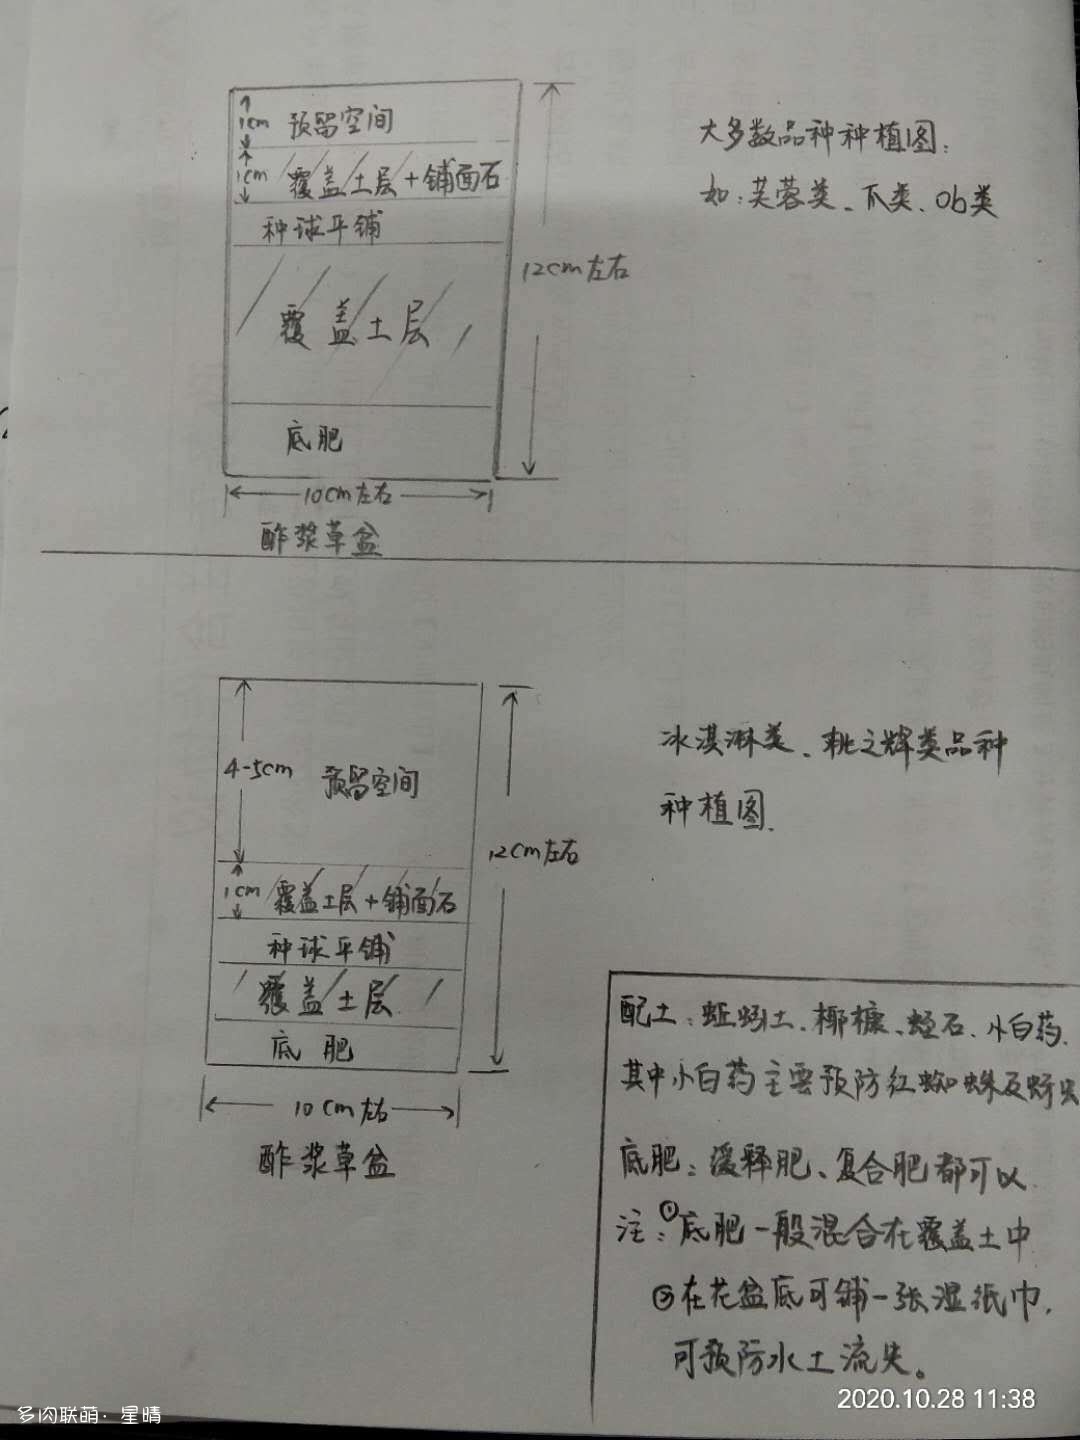 1cm 预留空间
1cm 覆盖土层+铺面石
种球平铺
覆盖土层
底肥
12cm左右
10cm左右
酢浆草盆
大多数品种种植图:
如:芙蓉类、爪类、Ob类
4-5cm 预留空间
1cm 覆盖土层+铺面石
种球平铺
覆盖土层
底肥
12cm左右
10cm左右
酢浆草盆
冰淇淋类、桃之辉类品种
种植图.
配土:蚯蚓土、椰糠、蛭石、小白药.
其中小白药主要预防红蜘蛛及蚜虫
底肥:缓释肥、复合肥都可以.
注:①底肥一般混合在覆盖土中
②在花盆底可铺一张湿纸巾,
可预防水土流失。
2020.10.28 11:38
多肉联萌·星晴